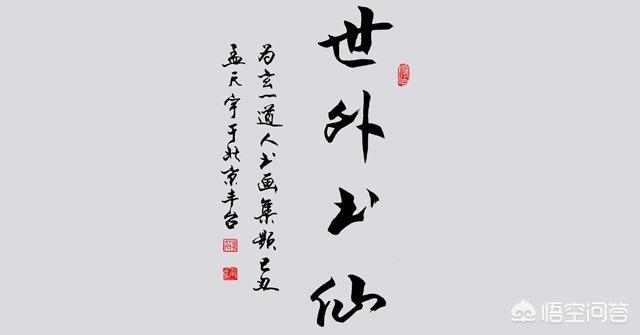 世外书仙
为玄一道人书画集题己丑
孟天宇于北京丰台
悟空问答